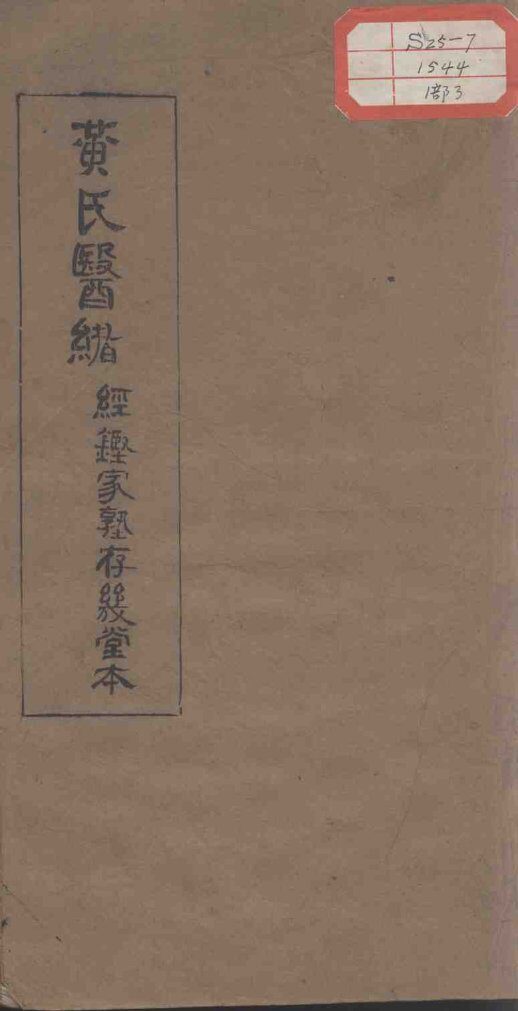 黃氏醫緒
經鏗家塾存幾堂本
S25-7
1544
1部3